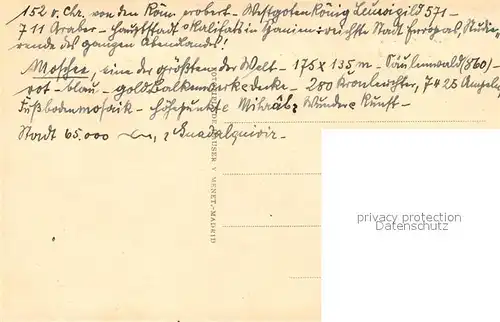 152 v. Chr. von den Röm. erobert - Westgotenkönig Leuwigild 571 -
711 Araber - Hauptstadt d. Kalifats in Spanien: reichste Stadt Europas, Studie-
rende des ganzen Abendlandes!
Moschee, eine der größten der Welt - 175 x 135 m - Säulenwald (860) -
rot - blau - gold balkenwerkdecke - 280 Kronleuchter, 7425 Ampeln
Fußbodenmosaik - Höhepunkte Mihrâb: Wunder Kunst -
Stadt 65.000 Guadalquivir -
HAUSER Y MENET.-MADRID
privacy protection
www.ansichtskartenversand.com